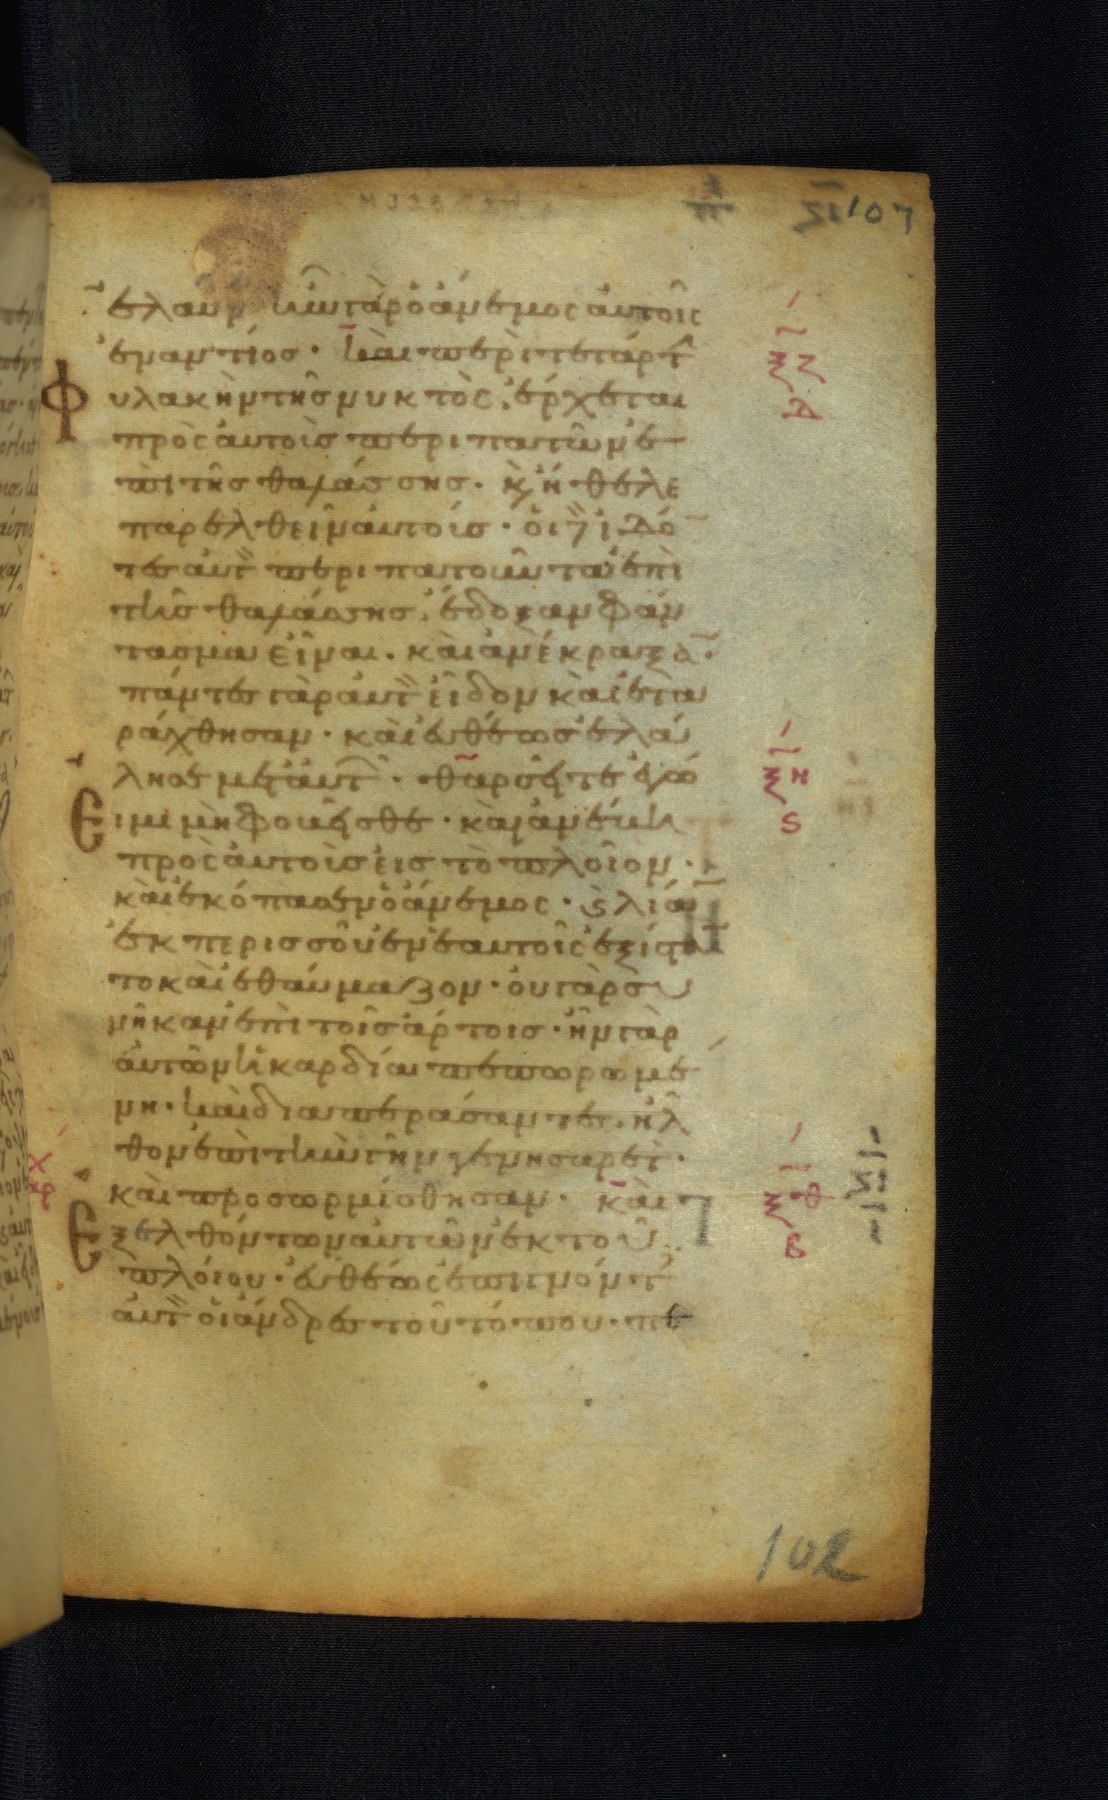 107
ἐλαύν ἦν γὰρ ὁ ἄνεμος αὐτοῖς
ἐναντίος · καὶ περὶ τετάρτ
φυλακὴν τῆς νυκτὸς, ἔρχεται
πρὸς αὐτοὺς περιπατῶν ἐ
πὶ τῆς θαλάσσης · κ ἤθελε
παρελθεῖν αὐτούς · οἱ δὲ ἰδό
τες αὐτ περιπατοῦντα ἐπὶ
τῆς θαλάσσης, ἔδοξαν φάν
τασμα εἶναι · καὶ ἀνέκραξα ·
πάντες γὰρ αὐτ εἶδον καὶ ἐτα
ράχθησαν · καὶ εὐθέως ἐλά
λησε μετ αὐτ · θαρσεῖτε ἐγώ
εἰμι μὴ φοβεῖσθε · καὶ ἀνέβη
πρὸς αὐτοὺς εἰς τὸ πλοῖον ·
καὶ ἐκόπασεν ὁ ἄνεμος · κ λία
ἐκ περισσοῦ ἐν ἑαυτοῖς ἐξίσταν
το καὶ ἐθαύμαζον · οὐ γὰρ συ
νῆκαν ἐπὶ τοῖς ἄρτοις · ἦν γὰρ
αὐτῶν ἡ καρδία πεπωρωμέ
νη · καὶ διαπεράσαντες ἦλ
θον ἐπὶ τὴν γῆν γεννησαρέτ ·
καὶ προσωρμίσθησαν · καὶ
ἐξελθόντων αὐτῶν ἐκ τοῦ
πλοίου · εὐθέως ἐπιγνόντ
αὐτ οἱ ἄνδρες τοῦ τόπου · πε
102